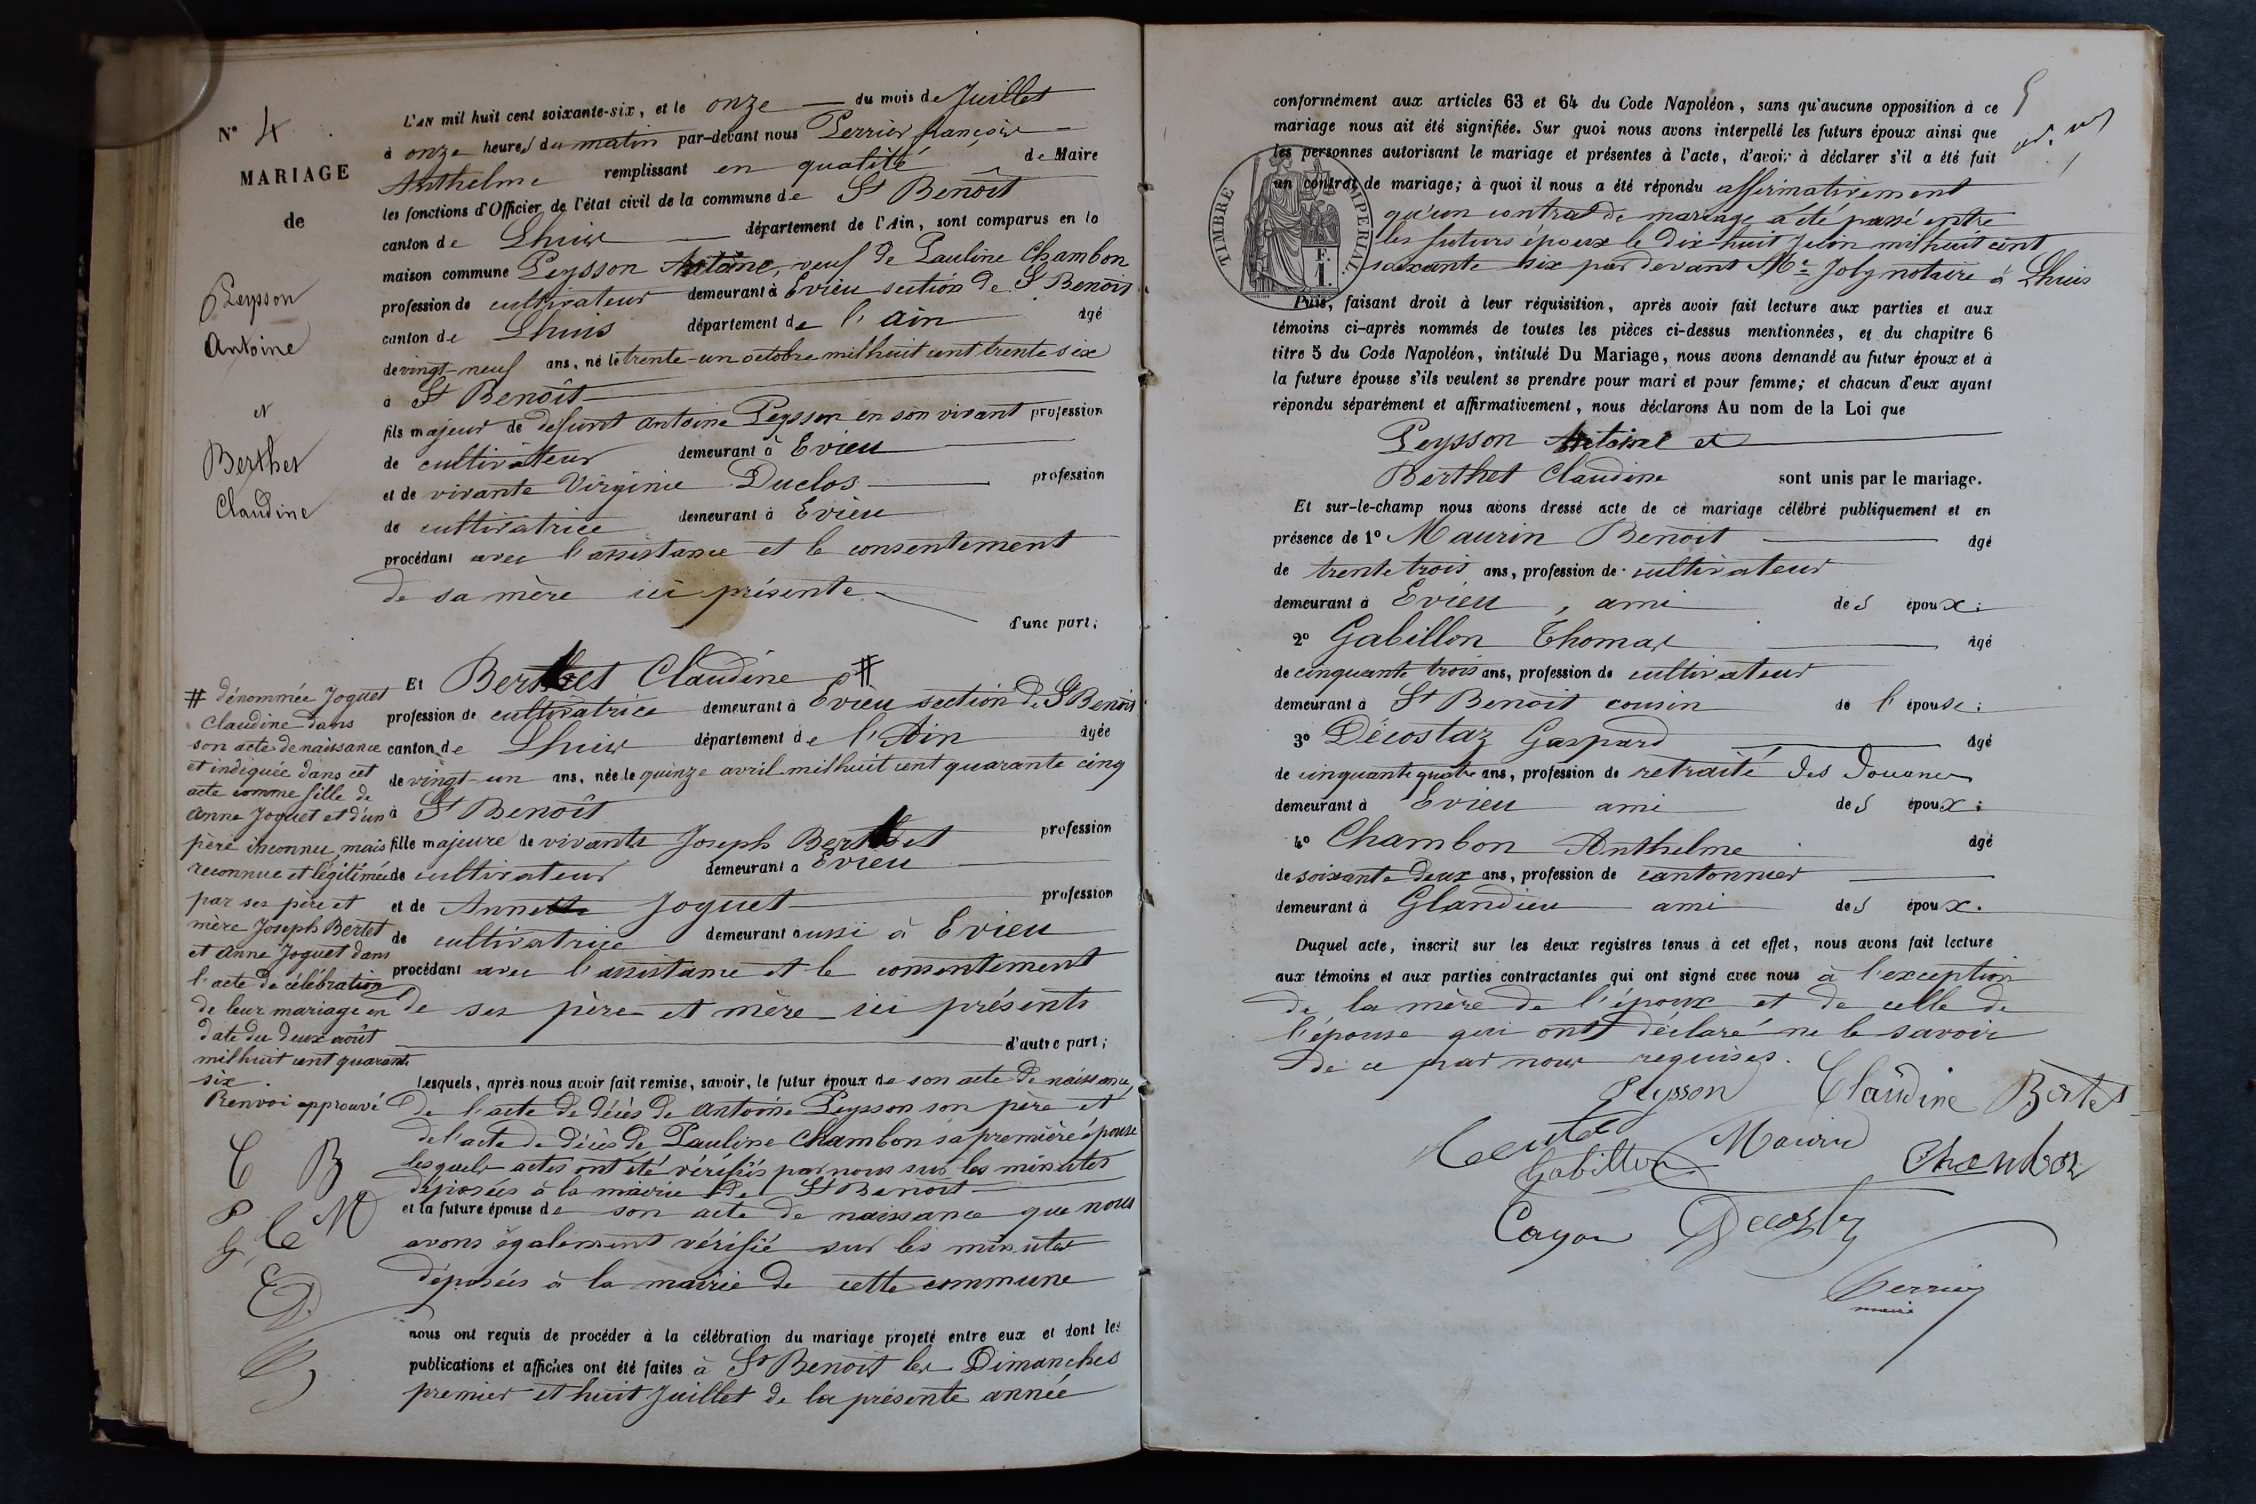 N° 4
MARIAGE
de
Peysson
Antoine
et
Berthet
Claudine
L'AN mil huit cent soixante-six, et le onze du mois de Juillet
à onze heures du matin par-devant nous Perrier françois
Anthelme remplissant en qualité de Maire
les fonctions d'Officier de l'état civil de la commune de St Benoît
canton de Lhuis département de l'Ain, sont comparus en la
maison commune Peysson Antoine, veuf de Pauline Chambon
profession de cultivateur demeurant à Evieu section de St Benoît
canton de Lhuis département de l'ain âgé
de vingt-neuf ans, né le trente-un octobre mil huit cent trente six
à St Benoît
fils majeur de defunt Antoine Peysson en son vivant profession
de cultivateur demeurant à Evieu
et de vivante Virginie Duclos profession
de cultivatrice demeurant à Evieu
procédant avec l'assistance et le consentement
de sa mère ici présente
d'une part;
Et Berthet Claudine #
profession de cultivatrice demeurant à Evieu section de St Benoît
canton de Lhuis département de l'Ain âgée
de vingt-un ans, née le quinze avril mil huit cent quarante cinq
à St Benoît
fille majeure de vivants Joseph Berthet profession
de cultivateur demeurant à Evieu
et de Annette Joguet profession
de cultivatrice demeurant aussi à Evieu
procédant avec l'assistance et le consentement
de ses père et mère ici présents
d'autre part;
# dénommée Joguet
Claudine dans
son acte de naissance
et indiquée dans cet
acte comme fille de
Anne Joguet et d'un
père inconnu, mais
reconnue et légitimée
par ses père et
mère Joseph Bertet
et Anne Joguet dans
l'acte de célébration
de leur mariage en
date du deux août
mil huit cent quarante
six.
Renvoi approuvé
C B
P
G C M
CD
Lesquels, après nous avoir fait remise, savoir, le futur époux de son acte de naissance,
de l'acte de décès de Antoine Peysson son père et
de l'acte de décès de Pauline Chambon sa première épouse
lesquels actes ont été vérifiés par nous sur les minutes
déposées à la mairie de St Benoit
et la future épouse de son acte de naissance que nous
avons également vérifié sur les minutes
déposées à la mairie de cette commune
nous ont requis de procéder à la célébration du mariage projeté entre eux et dont les
publications et affiches ont été faites à St Benoit les Dimanches
premier et huit Juillet de la présente année
5
conformément aux articles 63 et 64 du Code Napoléon, sans qu'aucune opposition à ce
mariage nous ait été signifiée. Sur quoi nous avons interpellé les futurs époux ainsi que
les personnes autorisant le mariage et présentes à l'acte, d'avoir à déclarer s'il a été fait
un contrat de mariage; à quoi il nous a été répondu affirmativement
qu'un contrat de mariage a été passé entre
les futurs époux le dix-huit Juin mil huit cent
soixante six par devant Me Joly notaire à Lhuis
TIMBRE IMPERIAL
F.
1.
Puis, faisant droit à leur réquisition, après avoir fait lecture aux parties et aux
témoins ci-après nommés de toutes les pièces ci-dessus mentionnées, et du chapitre 6
titre 5 du Code Napoléon, intitulé Du Mariage, nous avons demandé au futur époux et à
la future épouse s'ils veulent se prendre pour mari et pour femme; et chacun d'eux ayant
répondu séparément et affirmativement, nous déclarons Au nom de la Loi que
Peysson Antoine et
Berthet Claudine sont unis par le mariage.
Et sur-le-champ nous avons dressé acte de ce mariage célébré publiquement et en
présence de 1° Maurin Benoit âgé
de trente trois ans, profession de cultivateur
demeurant à Evieu, ami des époux;
2° Gabillon Thomas âgé
de cinquante trois ans, profession de cultivateur
demeurant à St Benoit cousin de l'épouse;
3° Décostaz Gaspard âgé
de cinquante quatre ans, profession de retraité des Douanes
demeurant à Evieu ami des époux;
4° Chambon Anthelme âgé
de soixante deux ans, profession de cantonnier
demeurant à Glandieu ami des époux.
Duquel acte, inscrit sur les deux registres tenus à cet effet, nous avons fait lecture
aux témoins et aux parties contractantes qui ont signé avec nous à l'exception
de la mère de l'époux et de celle de
l'épouse qui ont déclaré ne le savoir
de ce par nous requises.
Peysson Claudine Bertet
Maurin
Gabillon Chambon
Cayon Decosta
Perrier
maire